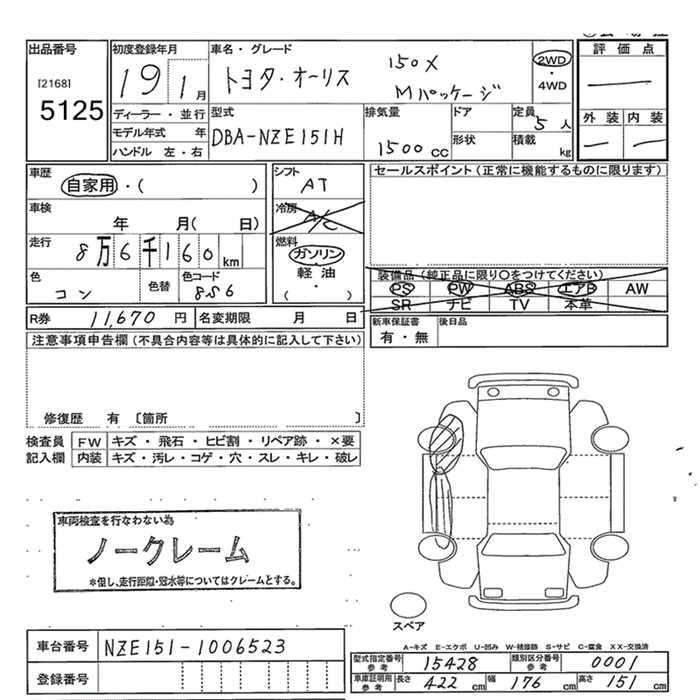 出品番号
[2168]
5125
初度登録年月
19 1 月
ディーラー・並行
モデル年式 年
ハンドル 左・右
車名・グレード
トヨタ・オーリス
150X
Mパッケージ
2WD
・
4WD
評価点
外装 内装
型式
DBA-NZE151H
排気量
1500 cc
ドア
形状
定員 5 人
積載 kg
車歴
自家用・( )
車検
年 月( 日)
走行
8万6千160km
色
コン
色替
色コード
8S6
シフト
AT
冷房
A/C
燃料
ガソリン
軽油
( ・ )
セールスポイント(正常に機能するものに限ります)
装備品(純正品に限り○をつけてください)
PS PW ABS エアB AW
SR ナビ TV 本革
R券 11,670 円 名変期限 月 日
新車保証書
有・無
後日品
注意事項申告欄(不具合内容等は具体的に記入して下さい)
修復歴 有 〔箇所 〕
検査員 FW キズ・飛石・ヒビ割・リペア跡・×要
記入欄 内装 キズ・汚レ・コゲ・穴・スレ・キレ・破レ
車両検査を行なわない為
ノークレーム
※但し、走行距離・冠水等についてはクレームとする。
スペア
車台番号 NZE151-1006523
登録番号
A-キズ E-エクボ U-凹み W-補修跡 S-サビ C-腐食 XX-交換済
型式指定番号
参考
15428
類別区分番号
参考
0001
車庫証明用
参考
長さ 422 cm 幅 176 cm 高さ 151 cm